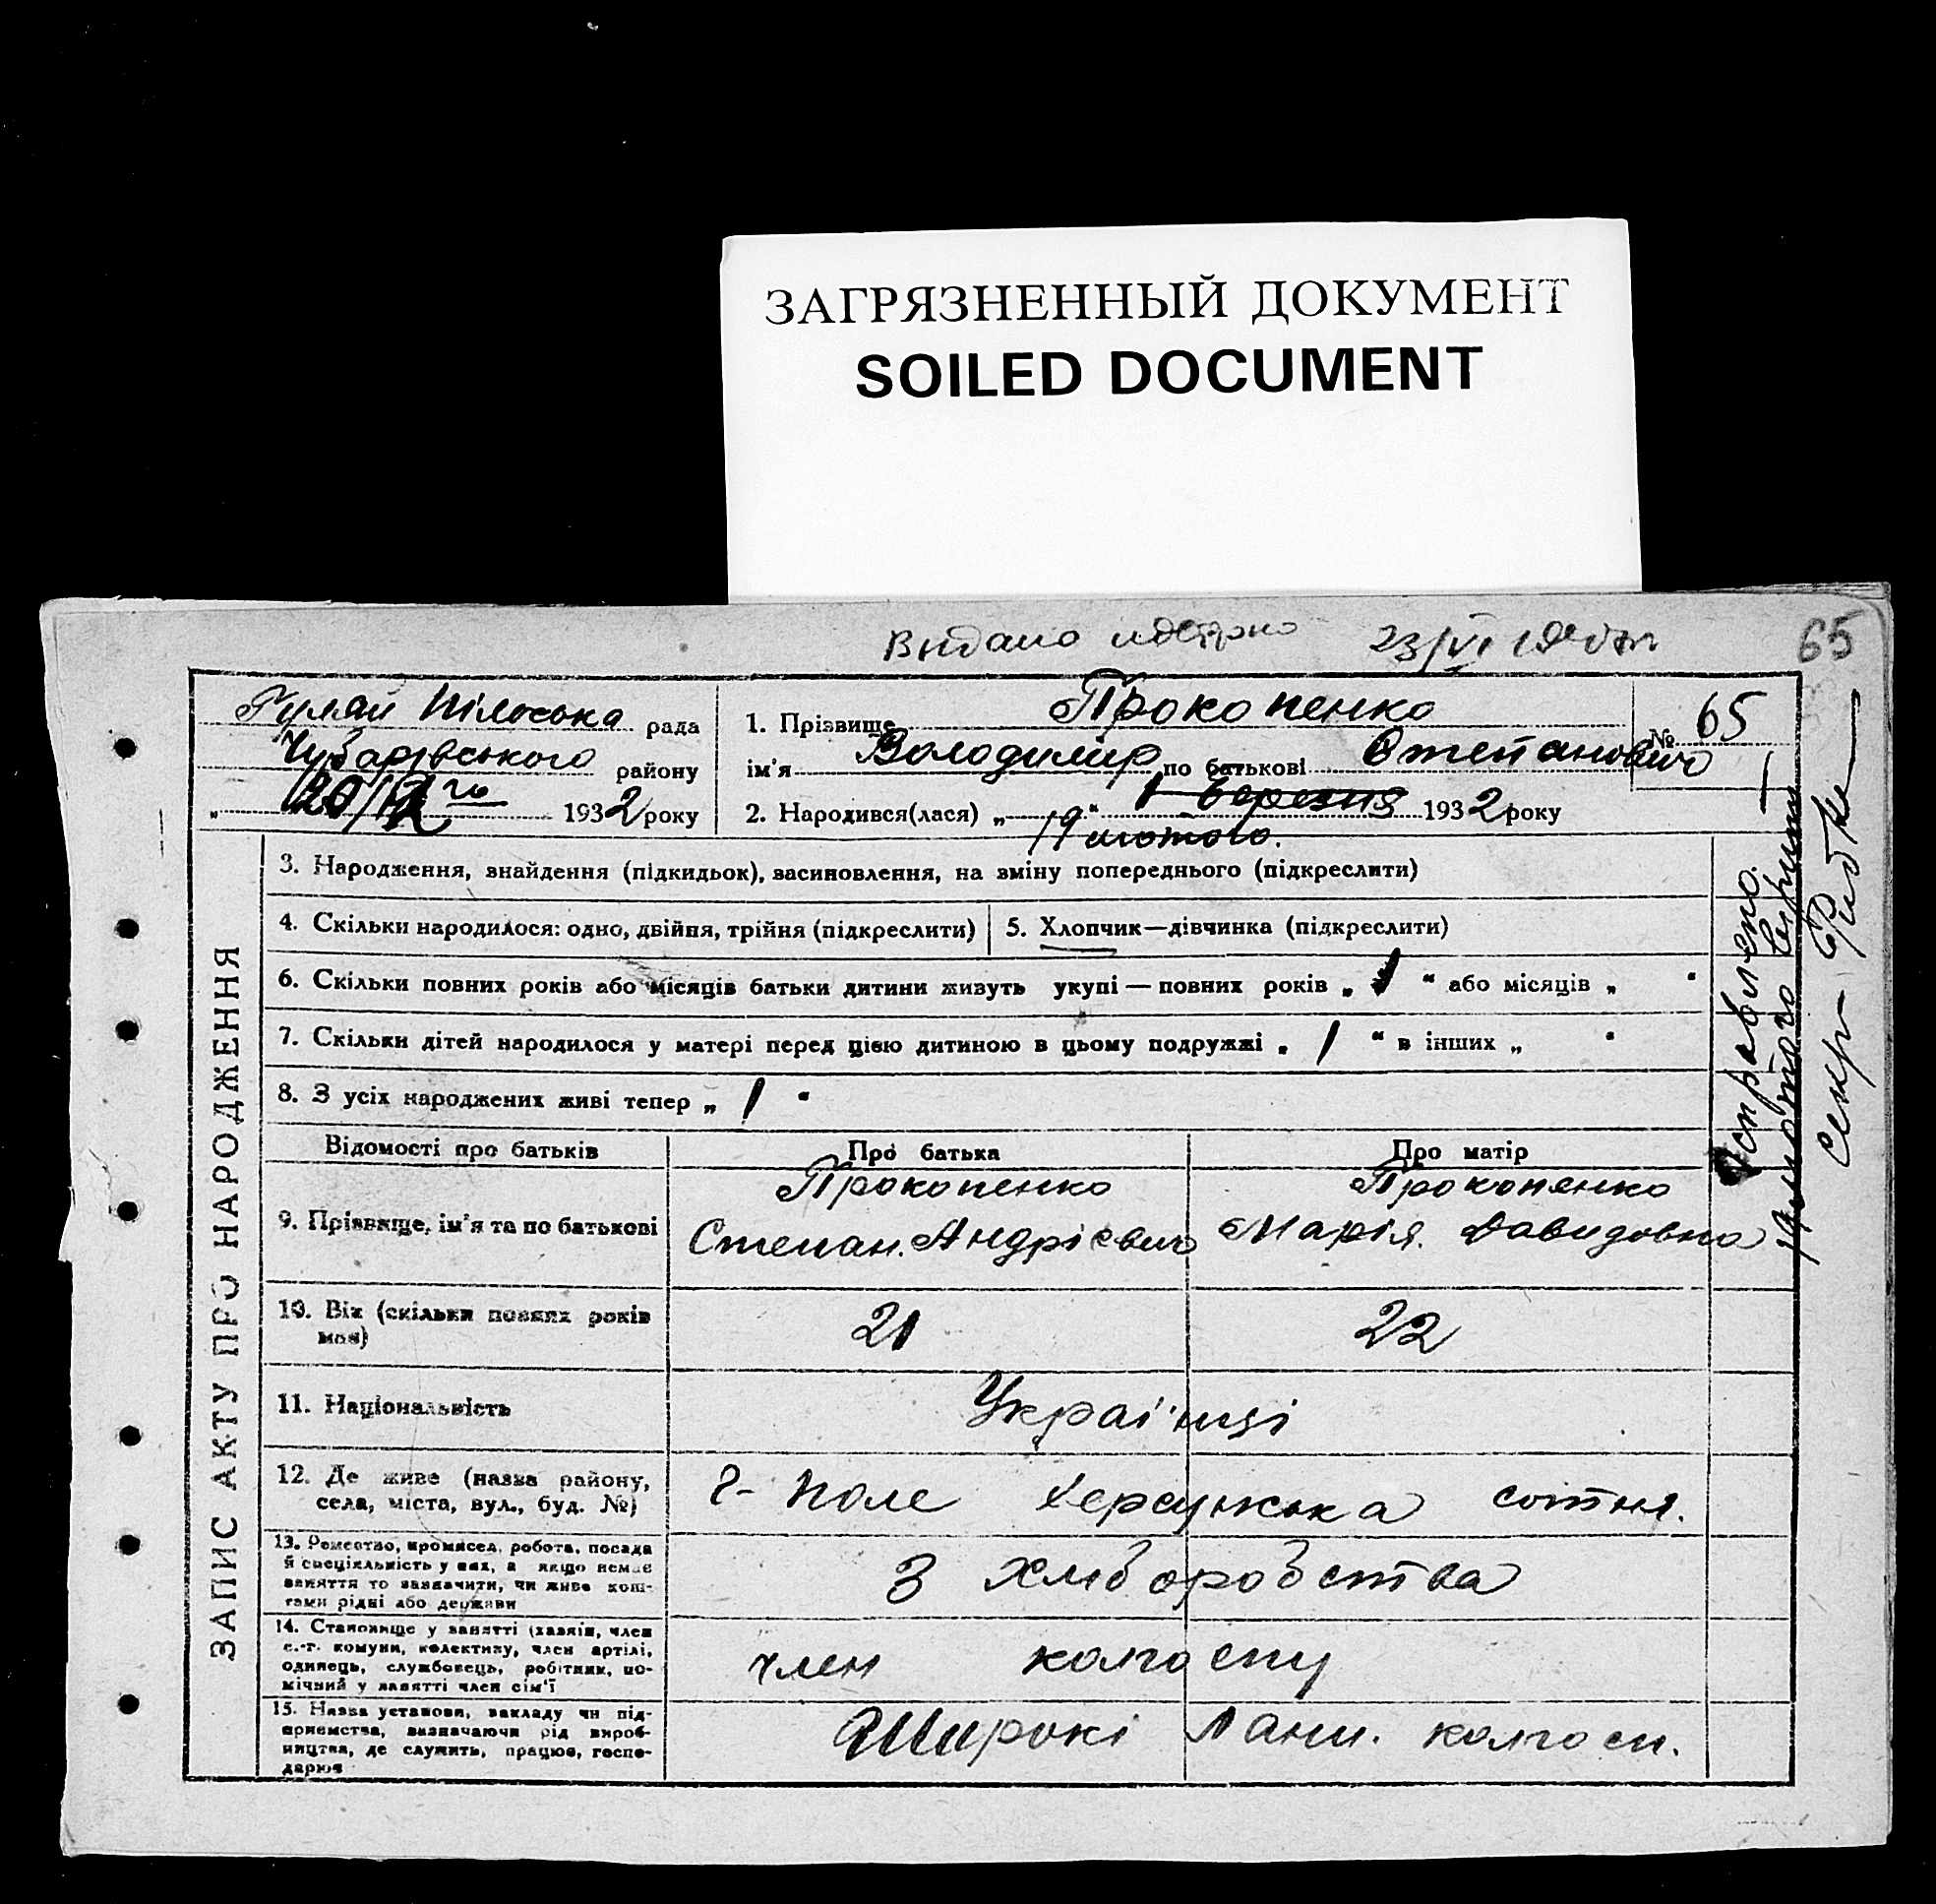 ЗАГРЯЗНЕННЫЙ ДОКУМЕНТ
SOILED DOCUMENT
Видано 23/VI
65
Гуляй Пільська рада
Чубарівського району
193 2 року
1. Прізвище Прокопенко
№ 65
ім'я Володимір по батькові Степанович
2. Народився(лася) „ “ 1 березня 193 2 року
19 лютого.
ЗАПИС АКТУ ПРО НАРОДЖЕННЯ
3. Народження, знайдення (підкидьок), васиновлення, на зміну попереднього (підкреслити)
4. Скільки народилося: одно, двійня, трійня (підкреслити)
5. Хлопчик—дівчинка (підкреслити)
6. Скільки повних років або місяців батьки дитини живуть укупі — повних років „ “ або місяців „ “
7. Скільки дітей народилося у матері перед цією дитиною в цьому подружжі „ 1 “ в інших „ “
8. З усіх народжених живі тепер „ 1 “
Відомості про батьків
Про батька
Про матір
9. Прізвище, ім'я та по батькові
Прокопенко
Степан. Андрієвич
Прокопенко
Марія. Давидовна
10. Вік (скільки повних років мав)
21
22
11. Національність
Українці
12. Де живе (назва району, села, міста, вул., буд. №)
Г- Поле Херсунська сотня.
13. Ремество, промисел, робота, посада й спеціяльність у них, а якщо немає заняття то зазначити, чи живе коштами рідні або держави
З хліборобства
14. Становище у занятті (хазяїн, член с.-г. комуни, колективу, член артілі, одинець, службовець, робітник, помічний у занятті член сім'ї
член колгоспу
15. Назва установи, закладу чи підприємства, зазначаючи рід виробництва, де служить, працює, господарює
Широкі Лани. колгосп.
Исправлено.
19 лютого вірити
Секр-